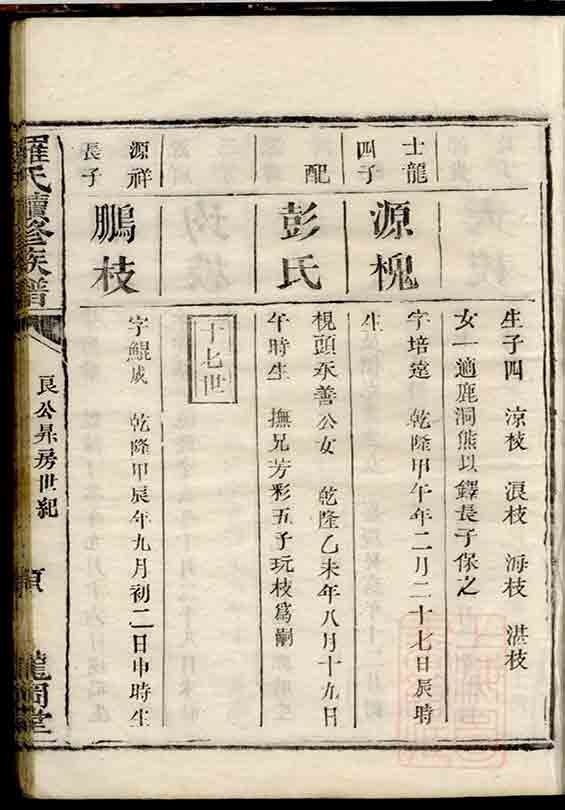 生子四　涼枝　浪枝　海枝　湛枝
女一適鹿洞熊以鐸長子保之
士龍
四子
源槐
字培遠　乾隆甲午年二月二十七日辰時
生
配
彭氏
梘頭永善公女　乾隆乙未年八月十九日
午時生　撫兄芳彩五子玩枝為嗣
十七世
源祥
長子
鵬枝
字鯤成　乾隆甲辰年九月初二日申時生
羅氏續修族譜
良公昇房世紀